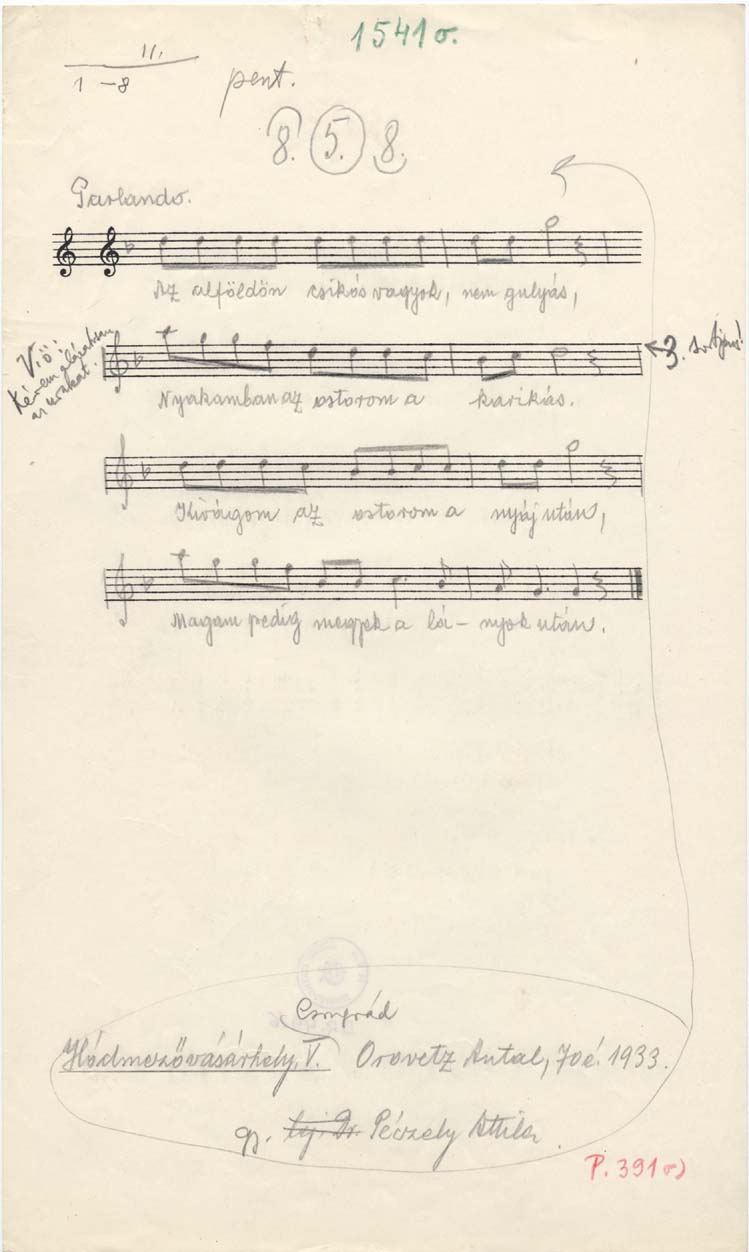 1541σ.
11.
1 – 8
pent.
8. 5. 8.
Parlando.
Az alföldön csikós vagyok, nem gulyás,
V.ö:
Kérem alásatosan
az urakat!
3.
Nyakamban az ostorom a karikás.
Kivágom az ostorom a nyáj után,
Magam pedig megyek a lá- nyok után.
Csongrád
Hódmezővásárhely, V. Orovetz Antal, 70é. 1933.
gy. ifj. Dr. Péczely Attila
P. 391σ)